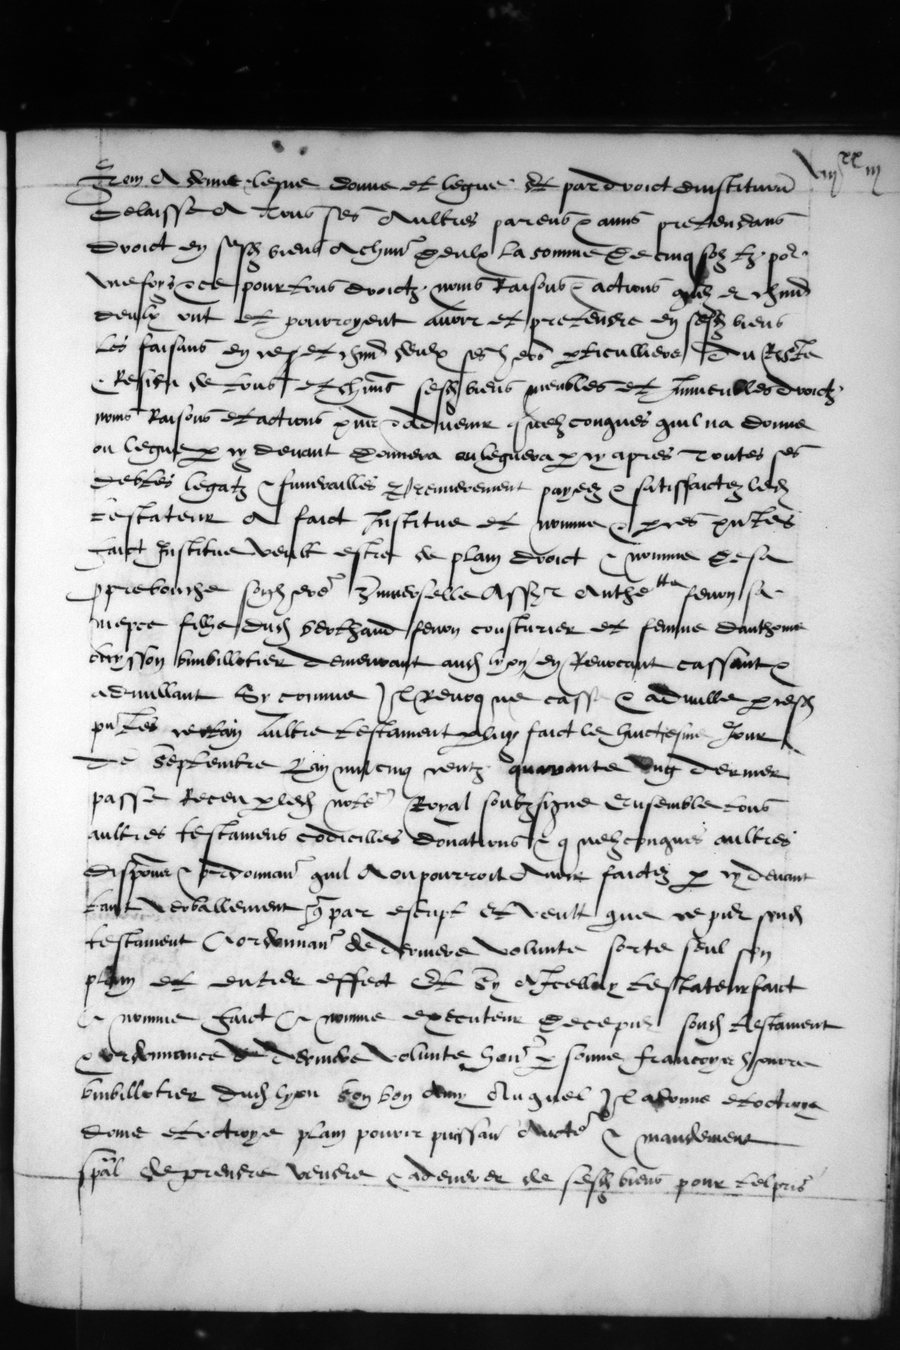 Item a donne legue donne et legue et par droict dinstitution
delaisse a tous ses aultres parens & amys pretendans
droict en sesd biens a chun deulx la somme de cinq solz tz po
une foys & ce pour tous droictz noms raisons & actions quilz et chun
deulx ont et pourroyent avoir et pretendre en sesd biens
les faisans en ce et chun deulx ses her particulliers du reste
& residu de tous et chuns sesd biens meubles et immeubles droictz
noms raisons et actions pns & advenir quelzconques quil na donne
ou legue p cy devant donnera ou leguera p cy apres toutes ses
debtes legatz & funerailles premierement payez & satisfaictz led
testateur a faict institue et nomme & p ces pntes
faict institue veult estre de plain droict & nomme de sa
ppre bouche son her universelle Anthe tte fenon sa
niepce fille dud Berthaud fenon cousturier et femme danthome
bimbillotier demeurant aud lyon en revocant cassant &
adnullant sy comme Il revoque casse & adnulle p cesd
pntes certain aultre testament p luy faict le huictiesme jour
de Septembre lan mil cinq centz quarante ung dernier
passe receu p led note Royal soubzsigne Ensemble tous
aultres testamens codicilles donations & quelzconques aultres
dispons & ordonnan quil a ou pourroit avoir faictz p cy devant
tant verballement q par escript et veult que ce pnt sond
testament & ordonnan de derniere volunte sorte seul son
plain et entier effect Et sy a Icelluy testateur faict
& nomme faict & nomme executeur de ce pnt sond testament
& ordonnance de derniere volunte hon p sonne francoys
bimbillotier dud lyon son bon amy Auquel Il a donne et octroye
donne et octroye plain pouvoir puissan aucte & mandement
spal de prendre vendre & adenerer de sesd biens pour tel pris